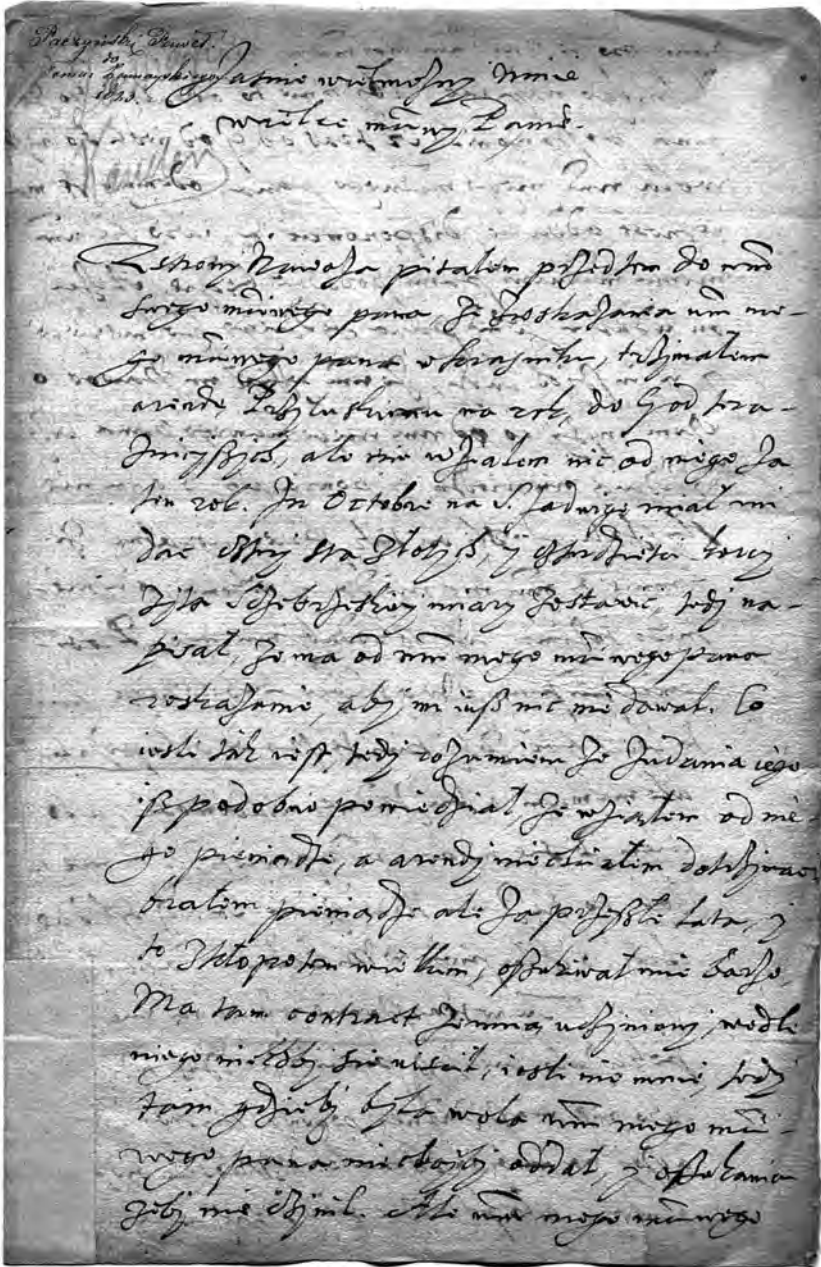 Paczyński Paweł
do
Tomasz Zamoyskiego
1623.
Jasnie wielmozny Mnie
wielce mćiwy Panie.
Zstrony pisałem przedtem do wm̃
swego mćiwego pana, ze zroskazania wm̃ me-
go mćiwego pana wkrasnimstawie, trzimałem
arendę na rok, do God tera-
znieyszych, ale nie wziałem nic od niego za
ten rok. In Octobre na S. Jadwigę miał mi
dac cztery sta złotych, y korcy
zyta Sczebrzeskiey miary zostawic, tedy na-
pisał, ze ma od wm̃ mego mćiwego pana
roskazanie, aby mi iusz nic nie dawał. Co
iesli tak iest, tedy rozumiem ze zudania iego
isz podobno powiedział, ze wziąłem od nie-
go pieniądze, a arendy nie chciałem dotrzimac
brałem pieniądze ale za przeszłe lata, y
to zkłopotem wielkim, oszukiwał mie barzo.
Ma tam contract zemną uczyniony, wedle
niego niechby sie uiscił, iesli nie mnie, tedy
tam gdzieby była wola wm̃ mego mći-
wego pana niechayby oddał, y oszukania
zeby nie czynił. Ale wm̃ mego mćiwego